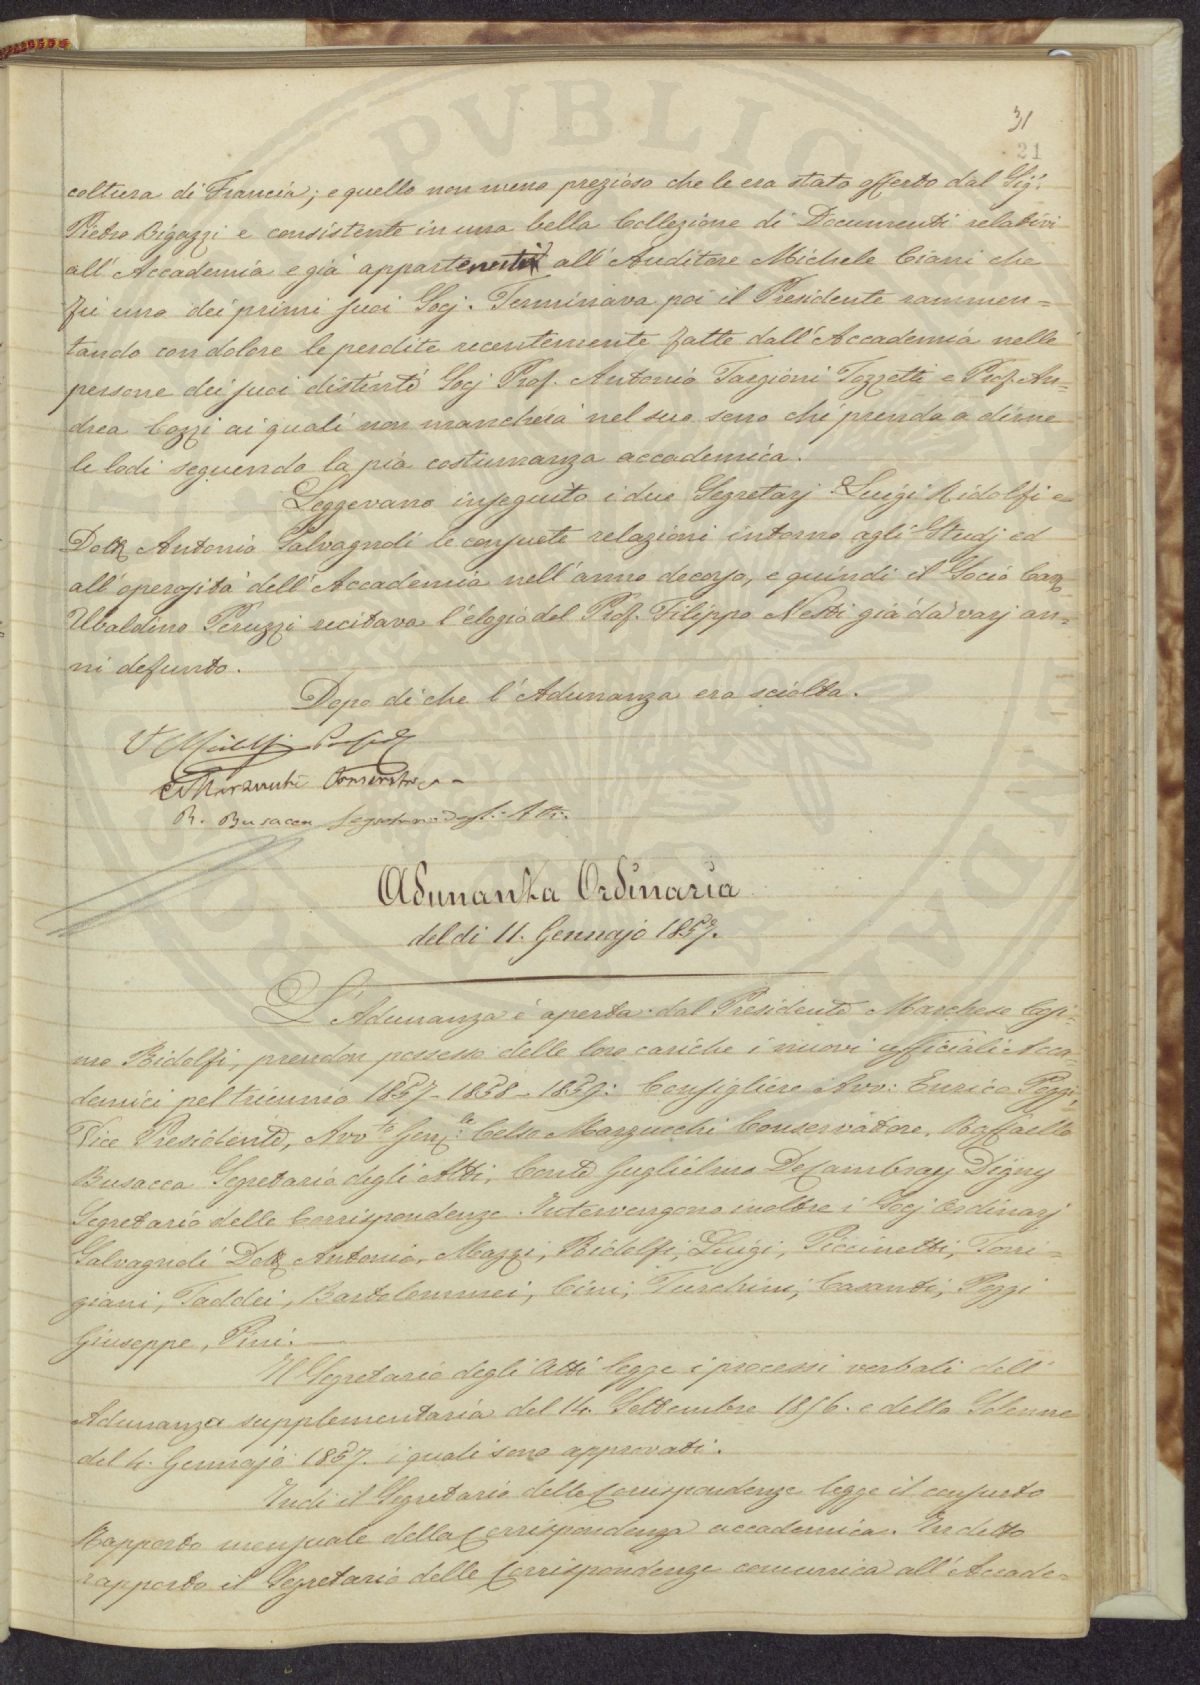 31
21
coltura di Francia; e quello non meno prezioso che le era stato offerto dal Sigr.
Pietro Bigazzi e consistente in una bella Collezione di Documenti relativi
all'Accademia e già appartenenti all'Auditore Michele Ciani che
fu uno dei primi suoi Socj. Terminava poi il Presidente rammen=
tando con dolore le perdite recentemente fatte dall'Accademia nelle
persone dei suoi distinti Socj Prof. Antonio Targioni Tozzetti e Prof. An=
drea Cozzi ai quali non mancherà nel suo seno chi prenda a dirne
le lodi seguendo la pia costumanza accademica.
Leggevano in seguito i due Segretarj Luigi Ridolfi e
Dott. Antonio Salvagnoli le consuete relazioni intorno agli Studj ed
all'operosità dell'Accademia nell'anno decorso, e quindi il Socio Cav.
Ubaldino Peruzzi recitava l'elogio del Prof. Filippo Nesti già da varj an=
ni defunto.
Dopo di che l'Adunanza era sciolta.
C. Marzucchi Conservatore
R. Busacca Segretario degli Atti
Adunanza Ordinaria
del dì 11. Gennajo 1857.
L'Adunanza è aperta dal Presidente Marchese Cosi=
mo Ridolfi, prendon possesso delle loro cariche i nuovi ufficiali Acca=
demici pel triennio 1857-1858-1859: Consigliere Avv: Enrico Poggi,
Vice Presidente, Avvto. Genle: Celso Marzucchi Conservatore, Raffaello
Busacca Segretario degli Atti, Conte Guglielmo De Cambray Digny
Segretario delle Corrispondenze. Intervengono inoltre i Socj Ordinarj
Salvagnoli Dott. Antonio, Mazzi, Ridolfi Luigi, Piccinetti, Torri=
giani, Taddei, Bartolommei, Cini, Turchini, Casanti, Poggi
Giuseppe, Pini.
Il Segretario degli Atti legge i processi verbali dell'
Adunanza supplementaria del 14. Settembre 1856. e della Solenne
del 4. Gennajo 1857. i quali sono approvati.
Indi il Segretario delle Corrispondenze legge il consueto
Rapporto mensuale della Corrispondenza accademica. In detto
rapporto il Segretario delle Corrispondenze comunica all'Accade=